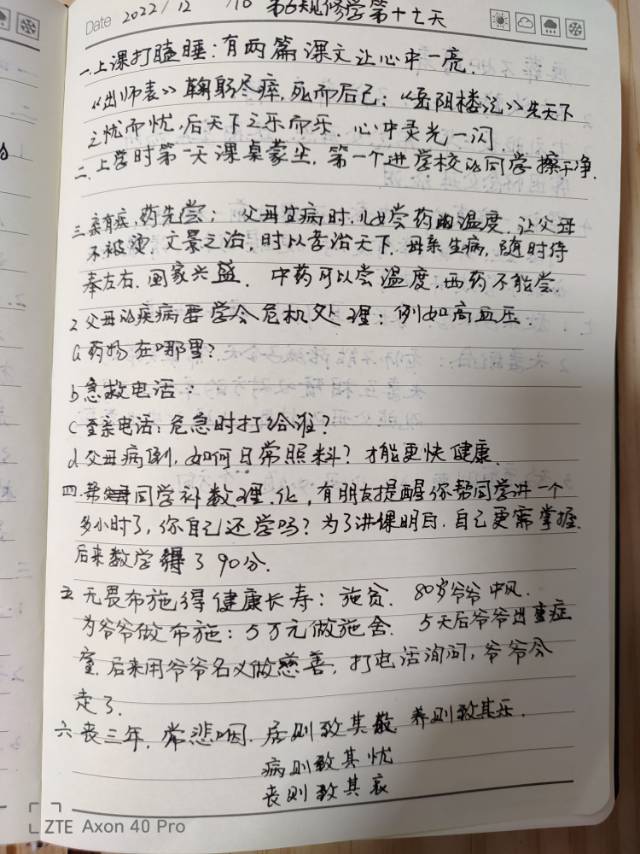 Date 2022/12/10 第6规修学第十七天
一.上课打瞌睡:有两篇课文让心中一亮.
《出师表》鞠躬尽瘁,死而后已;《岳阳楼记》先天下
之忧而忧,后天下之乐而乐.心中灵光一闪.
二.上学时第一天课桌蒙尘.第一个进学校的同学擦干净.
三.亲有疾,药先尝: 父母生病时,儿女尝药的温度.让父母
不被烫.文景之治,时以孝治天下.母亲生病,随时侍
奉左右.国家兴盛. 中药可以尝温度.西药不能尝.
2.父母的疾病要学会危机处理:例如高血压.
a药物在哪里?
b急救电话:
c至亲电话;危急时打给谁?
d父母病倒,如何日常照料?才能更快健康.
四.同学补数理化,有朋友提醒你帮同学讲一个
多小时了,你自己还学吗?为了讲课明白.自己更需掌握.
后来数学得了90分.
五 无畏布施得健康长寿: 施贫. 80岁爷爷中风.
为爷爷做布施:5万元做施舍. 5天后爷爷出重症
室.后来用爷爷名义做慈善.打电话询问,爷爷会
走了.
六.丧三年.常悲咽. 居则致其敬 养则致其乐.
病则致其忧
丧则致其哀
ZTE Axon 40 Pro